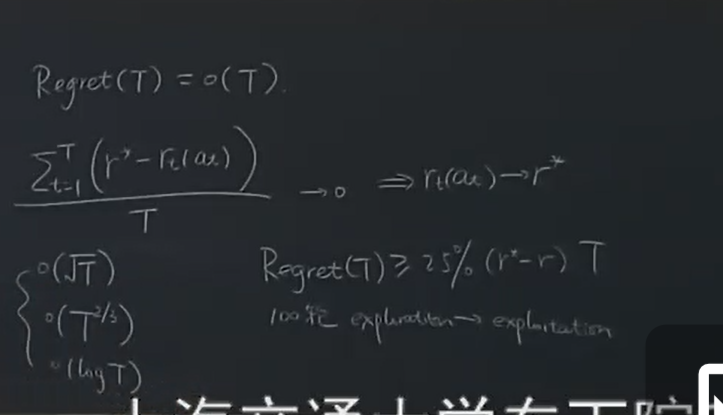 Regret(T) = o(T).
∑_{t=1}^{T} (r* - r_t(a_t)) / T → 0 ⇒ r_t(a_t) → r*
o(√T)
o(T^{2/3})
o(log T)
Regret(T) ≥ 25% (r* - r) T
100轮 exploration → exploitation
上海交通大学